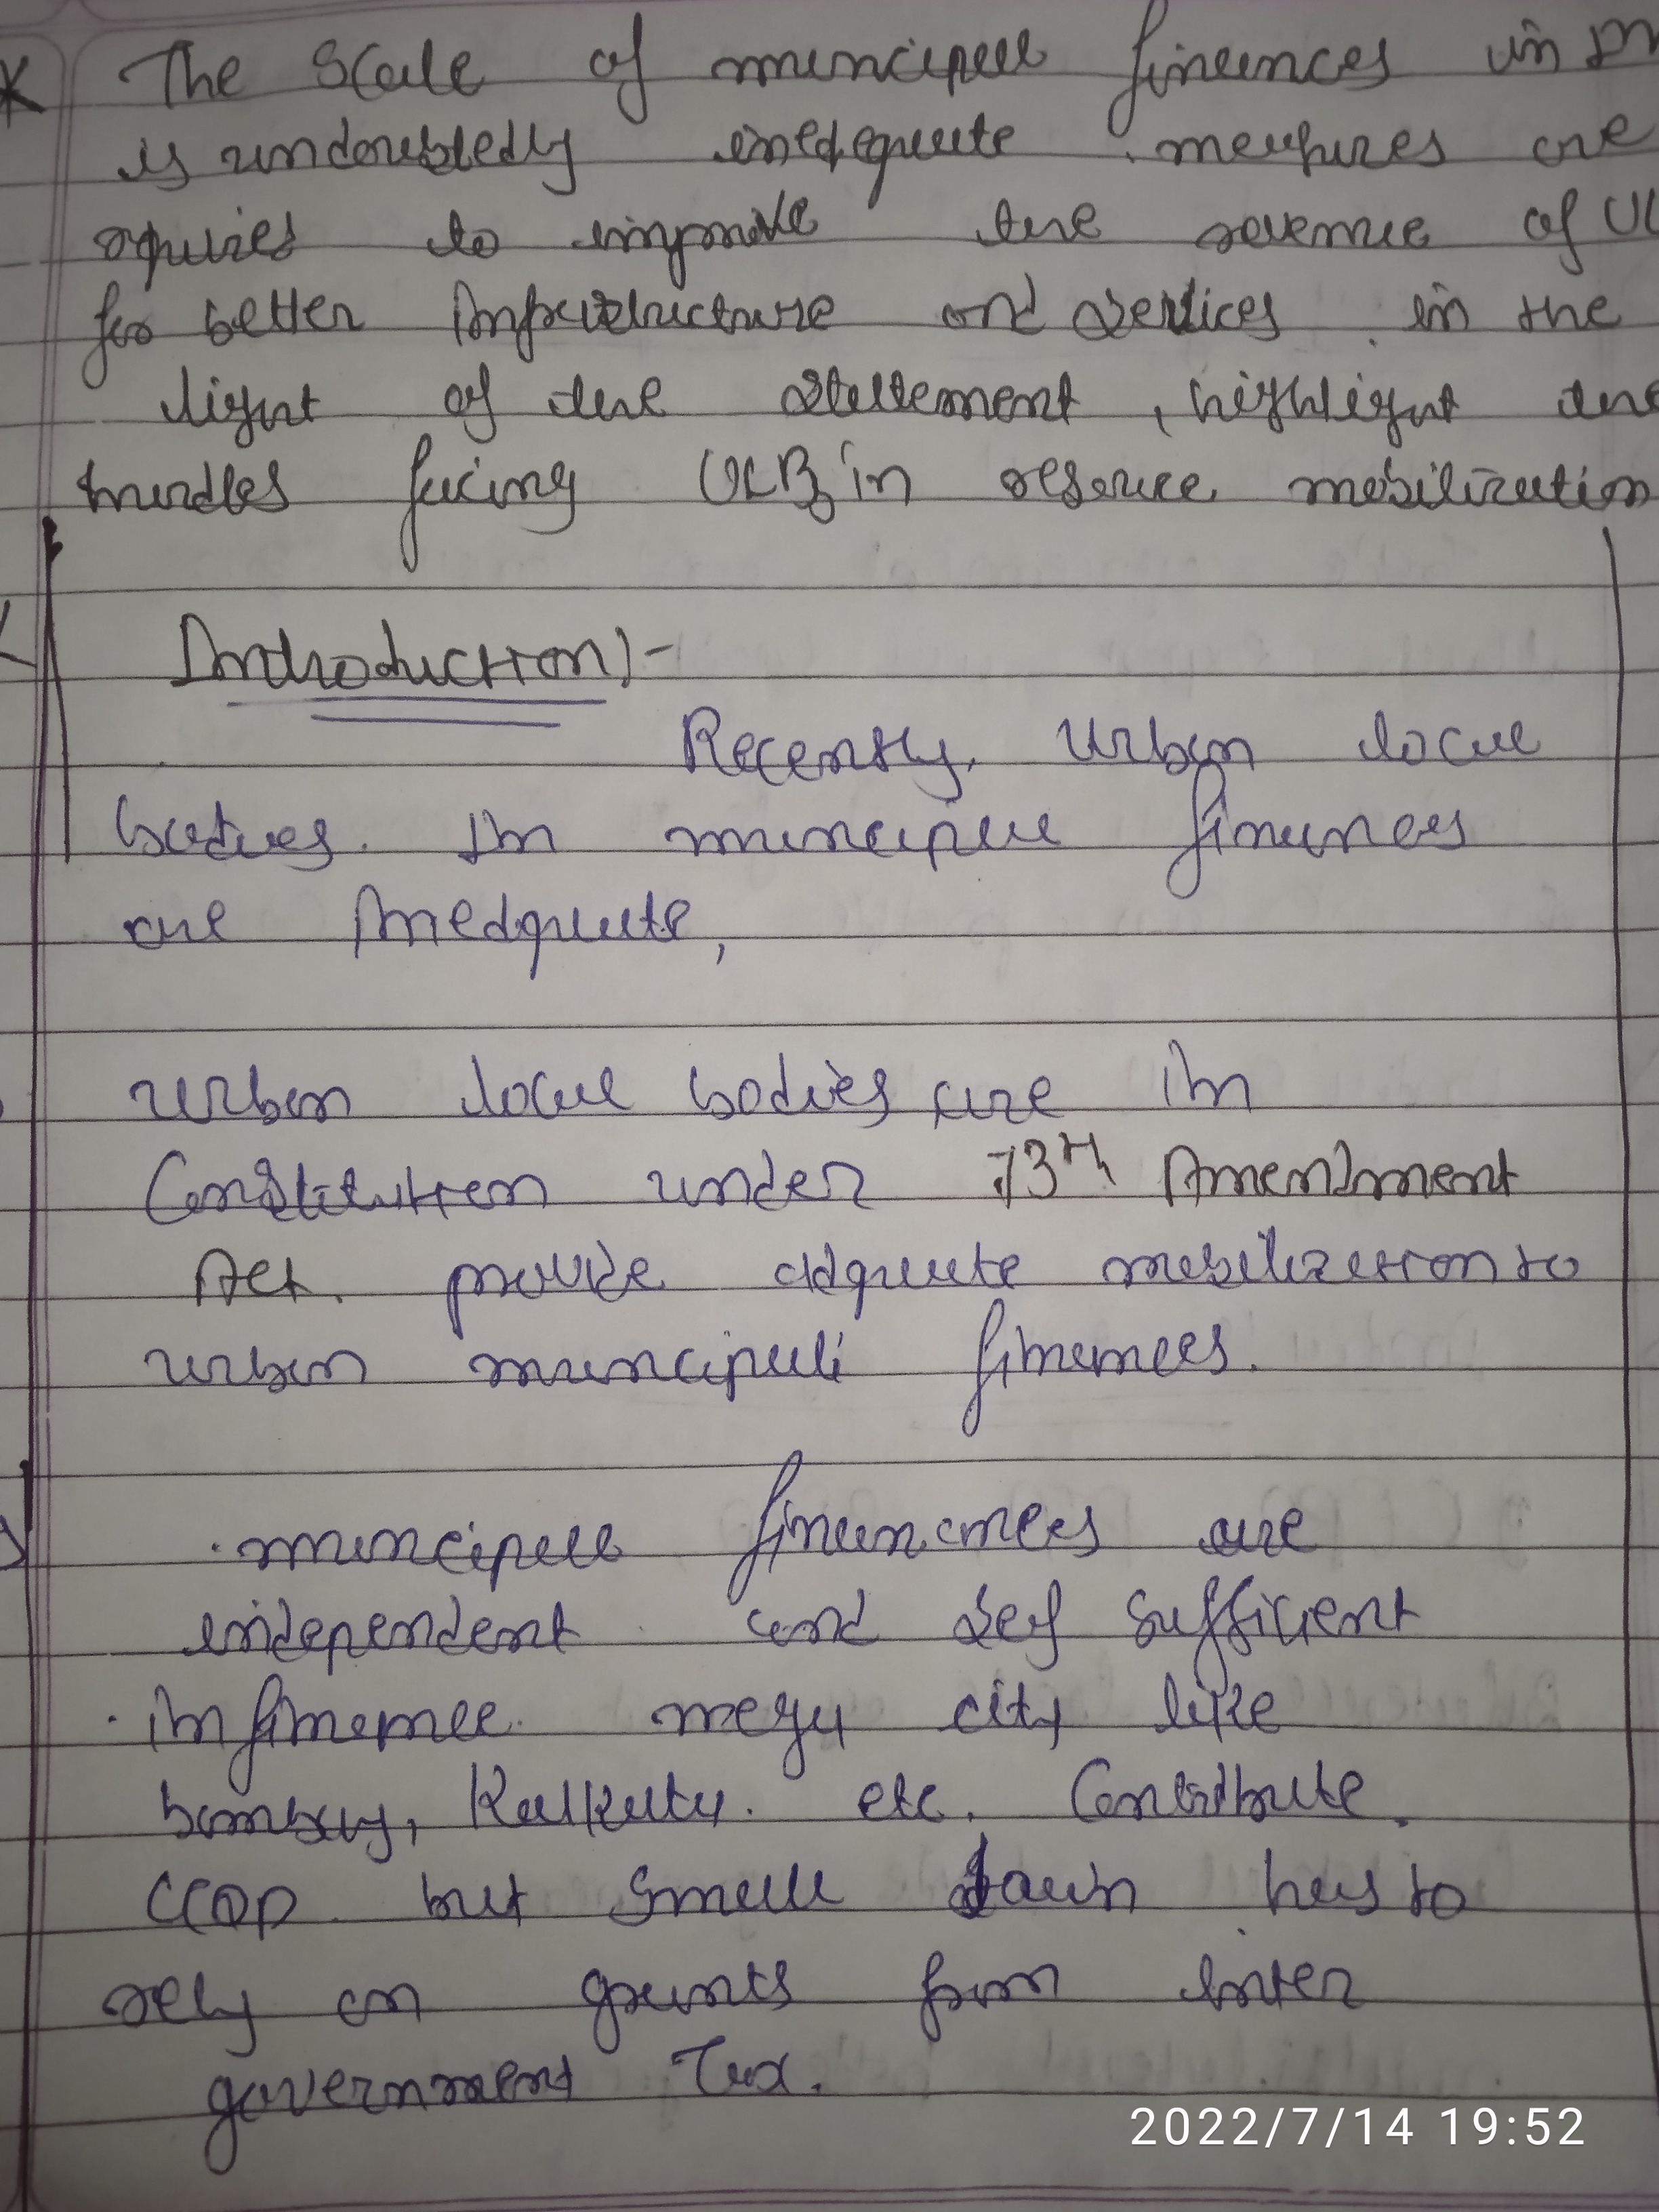 The Scale of muncipal finances in In
is undoubtedly inedequate . measures are
requires to improve the revenue of UL
for better Infrastructure and services . in the
light of the statement , highlight the
hurdles facing ULBs in resource mobilization
Introduction :-
Recently, Urban local
bodies. In muncipal finances
are Inedquate,
urban local bodies are in
Constitution under 73th Amendment
Act. provide adquate mobilization to
urban muncipali finances.
. muncipal finances are
independent and self sufficient
. in finance. mega city like
bombay, Kalkata. etc. Contribute.
GDP but small town has to
rely on grants from inter
government Tax.
2022/7/14 19:52